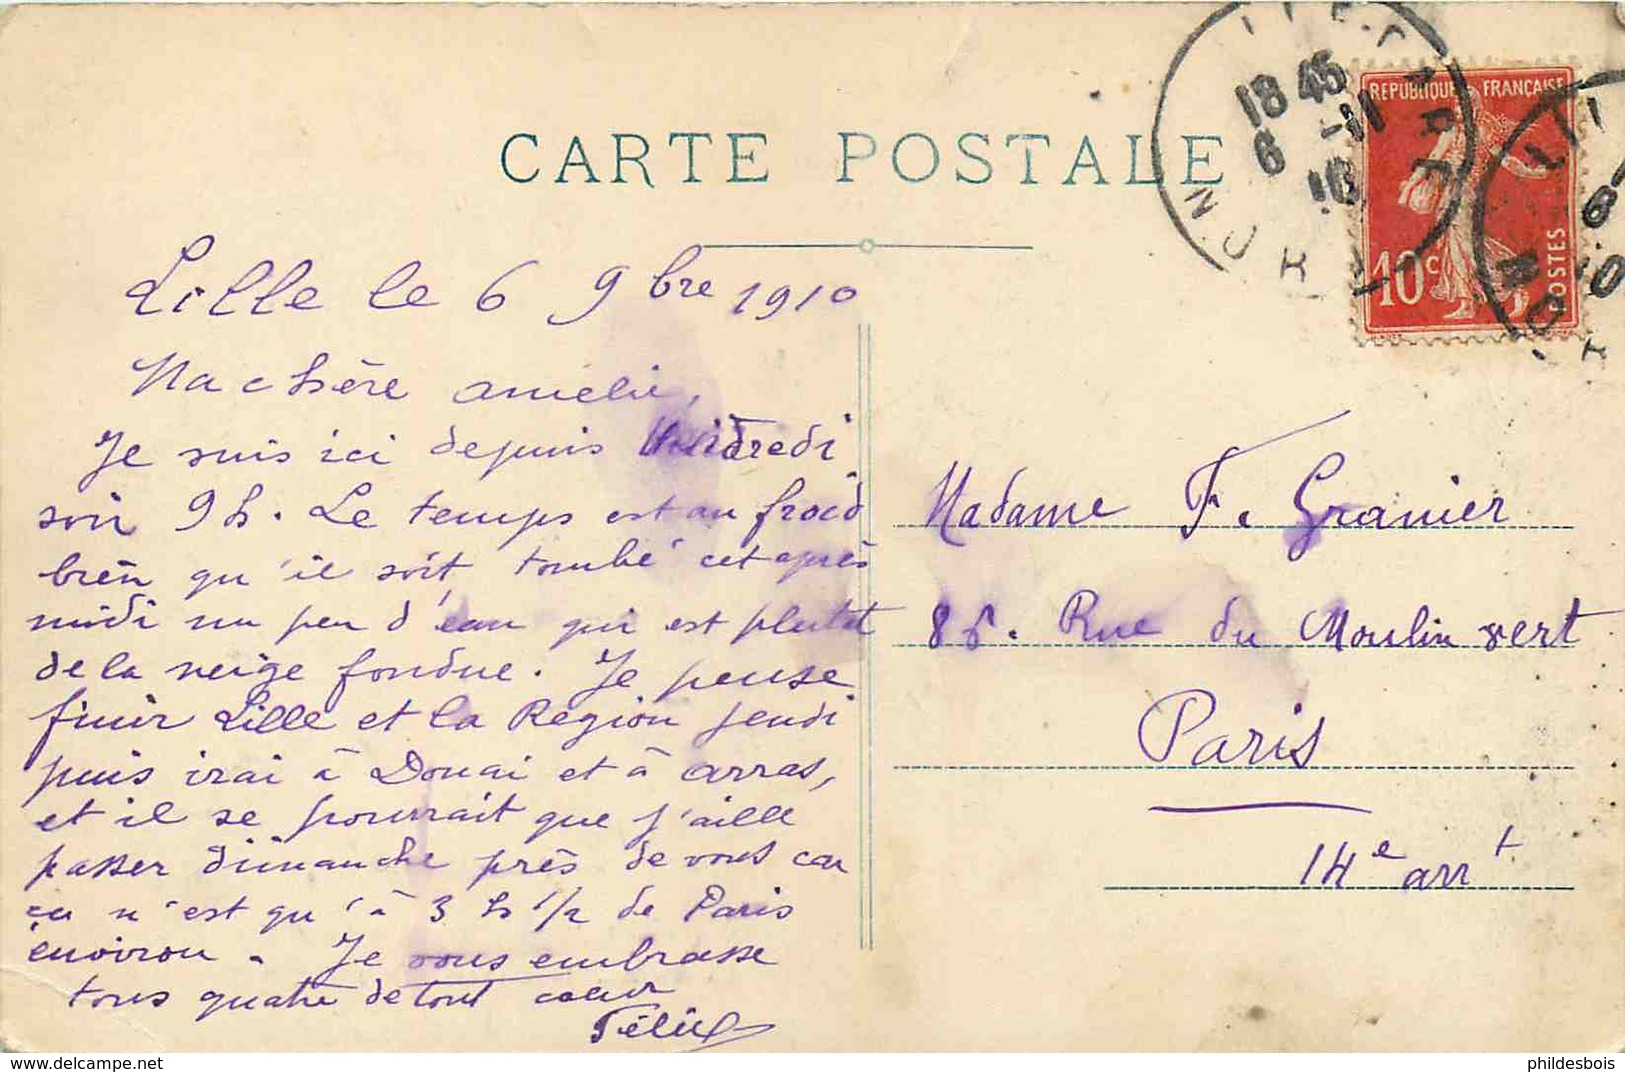 CARTE POSTALE
18 45
6 -11
10
REPUBLIQUE FRANÇAISE
10c
POSTES
Lille le 6 9bre 1910
Ma chère Amélie,
Je suis ici depuis Vendredi
soir 9h. Le temps est au froid
bien qu'il soit tombé cet après
midi un peu d'eau qui est plutôt
de la neige fondue. Je pense
finir Lille et la Région jeudi
puis irai à Douai et à Arras,
et il se pourrait que j'aille
passer dimanche près de vous car
ce n'est qu'à 3 h 1/2 de Paris
environ. Je vous embrasse
tous quatre de tout coeur
Félix
Madame F. Granier
85. Rue du Moulin vert
Paris
14e arrt
phildesbois